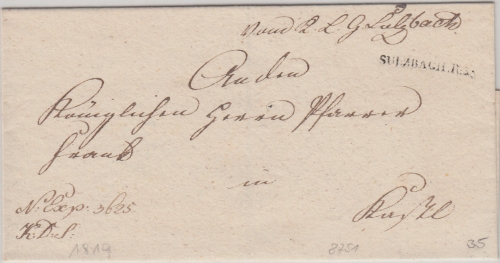 Vom K. L. G Sulzbach.
SULZBACH.R.3.
An den
Königlichen Herrn Pfarrer
Frank
in
Kastl
N: Exp: 3625.
1819
8751
35